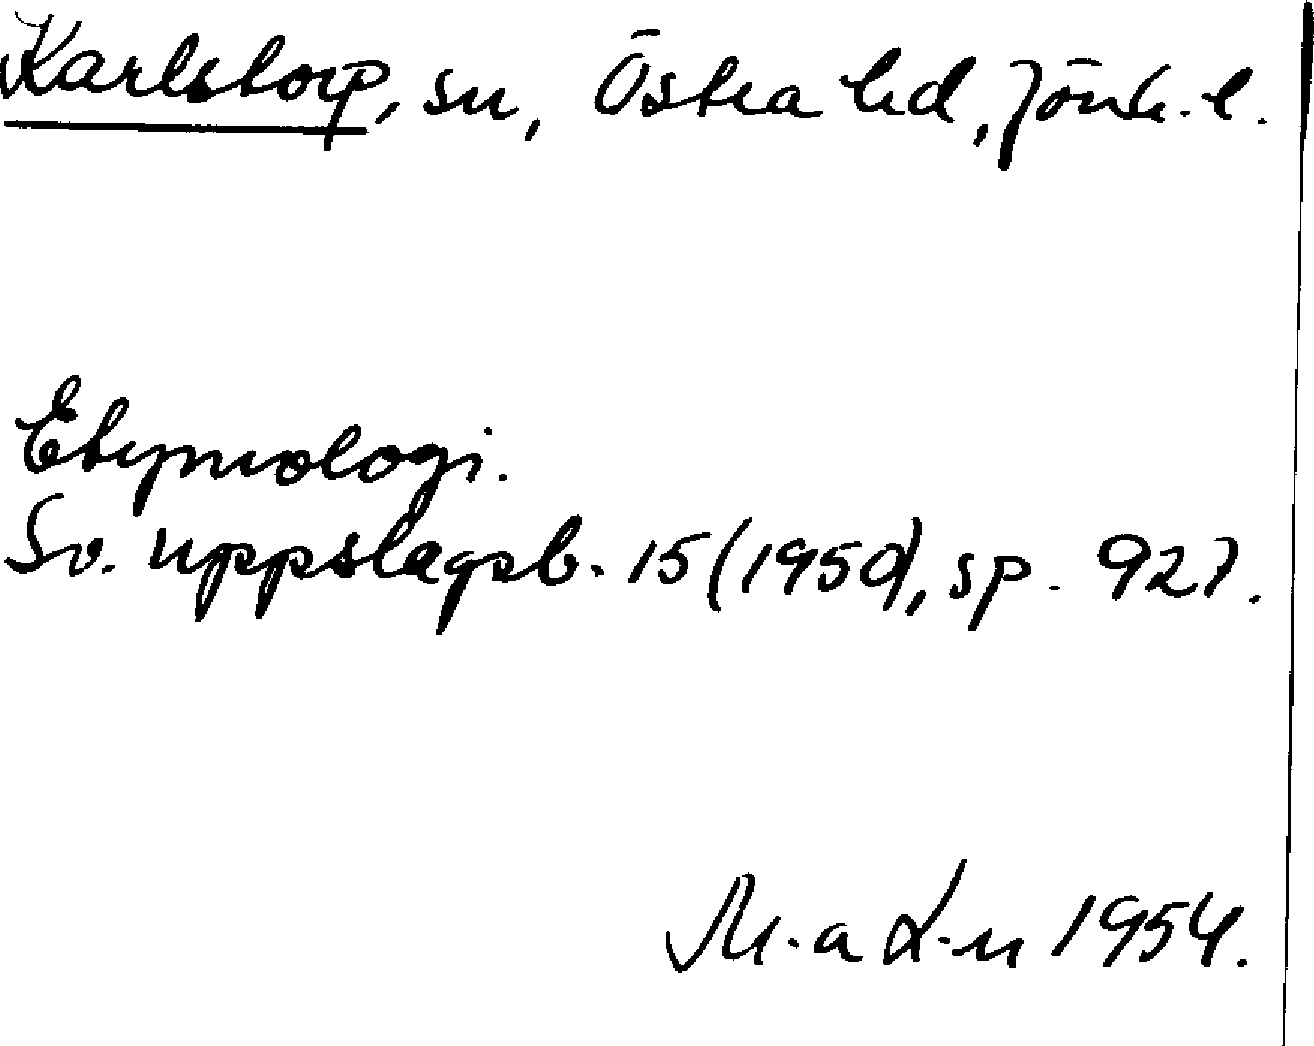 Karlstorp, sn, Östra hd, Jönk. l.
Etymologi.
Sv. uppslagsb. 15 (1950), sp. 927.
M-a L-n 1954.